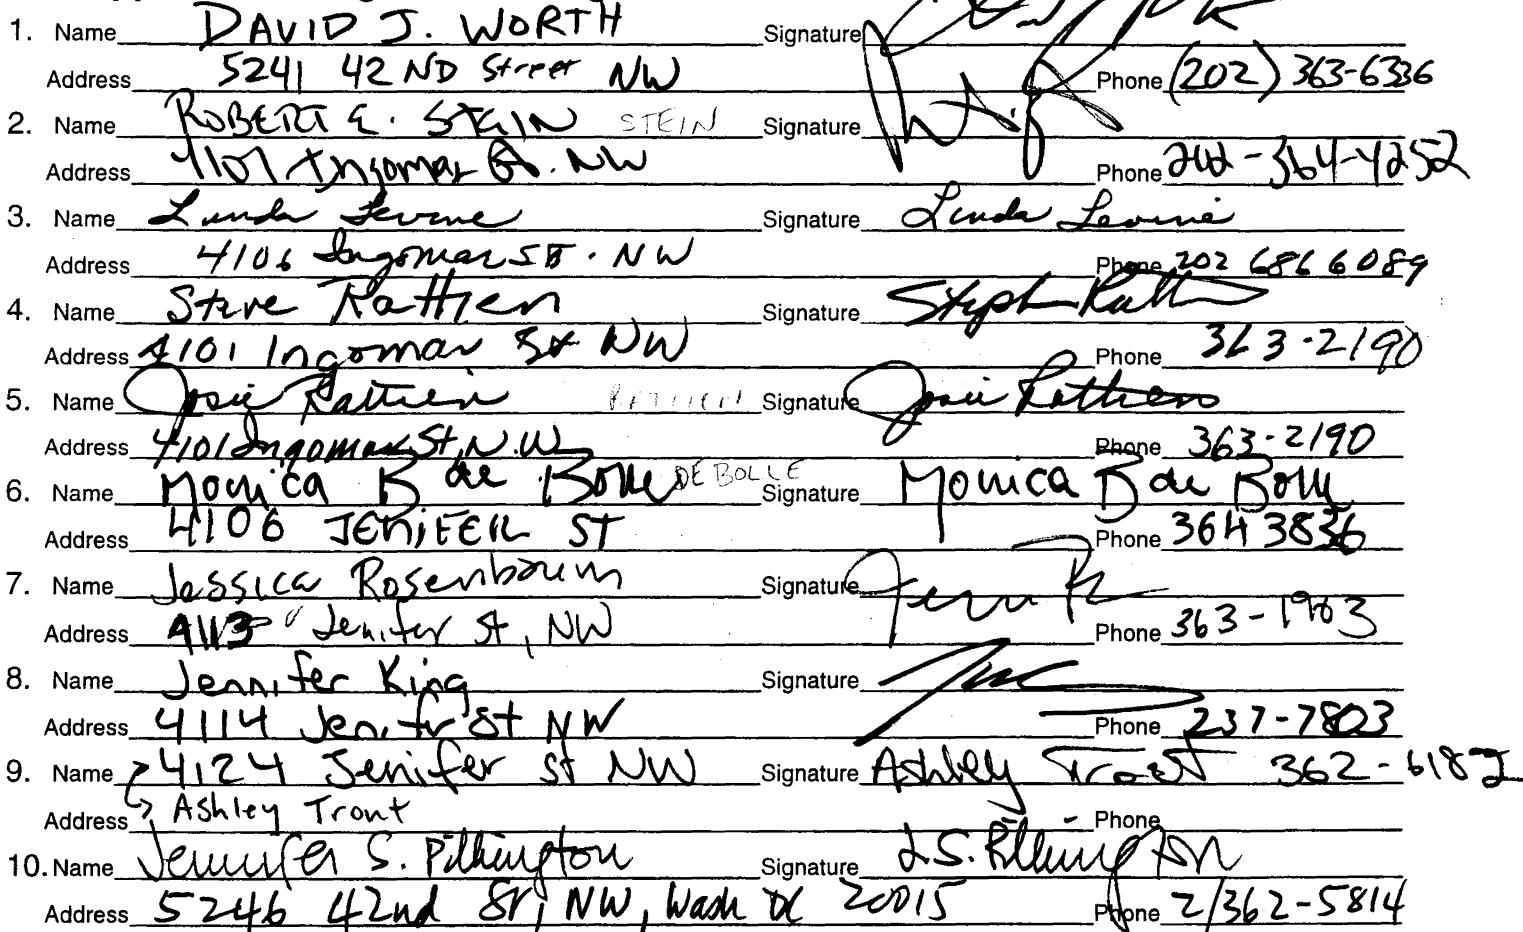 1. Name DAVID J. WORTH Signature
Address 5241 42ND Street NW Phone (202) 363-6336
2. Name ROBERT E. STEIN STEIN Signature
Address 4107 Ingomar St. NW Phone 202-364-4252
3. Name Linda Levine Signature Linda Levine
Address 4106 Ingomar St. NW Phone 202 686 6089
4. Name Steve Rathjen Signature
Address 4101 Ingomar St NW Phone 363-2190
5. Name Josie Rathjen Signature Josie Rathjen
Address 4101 Ingomar St, N.W. Phone 363-2190
6. Name Monica B de Bolle DE BOLLE Signature Monica B de Bolle
Address 4106 JENIFER ST Phone 364 3836
7. Name Jessica Rosenbaum Signature
Address 4113 Jenifer St, NW Phone 363-1903
8. Name Jennifer King Signature
Address 4114 Jenifr St NW Phone 237-7803
9. Name 4124 Jenifer St NW Signature Ashley Trout 362-6182
Address Ashley Trout Phone
10. Name Jennifer S. Pilkington Signature J.S. Pilkington
Address 5246 42nd St, NW, Wash DC 20015 Phone 2/362-5814